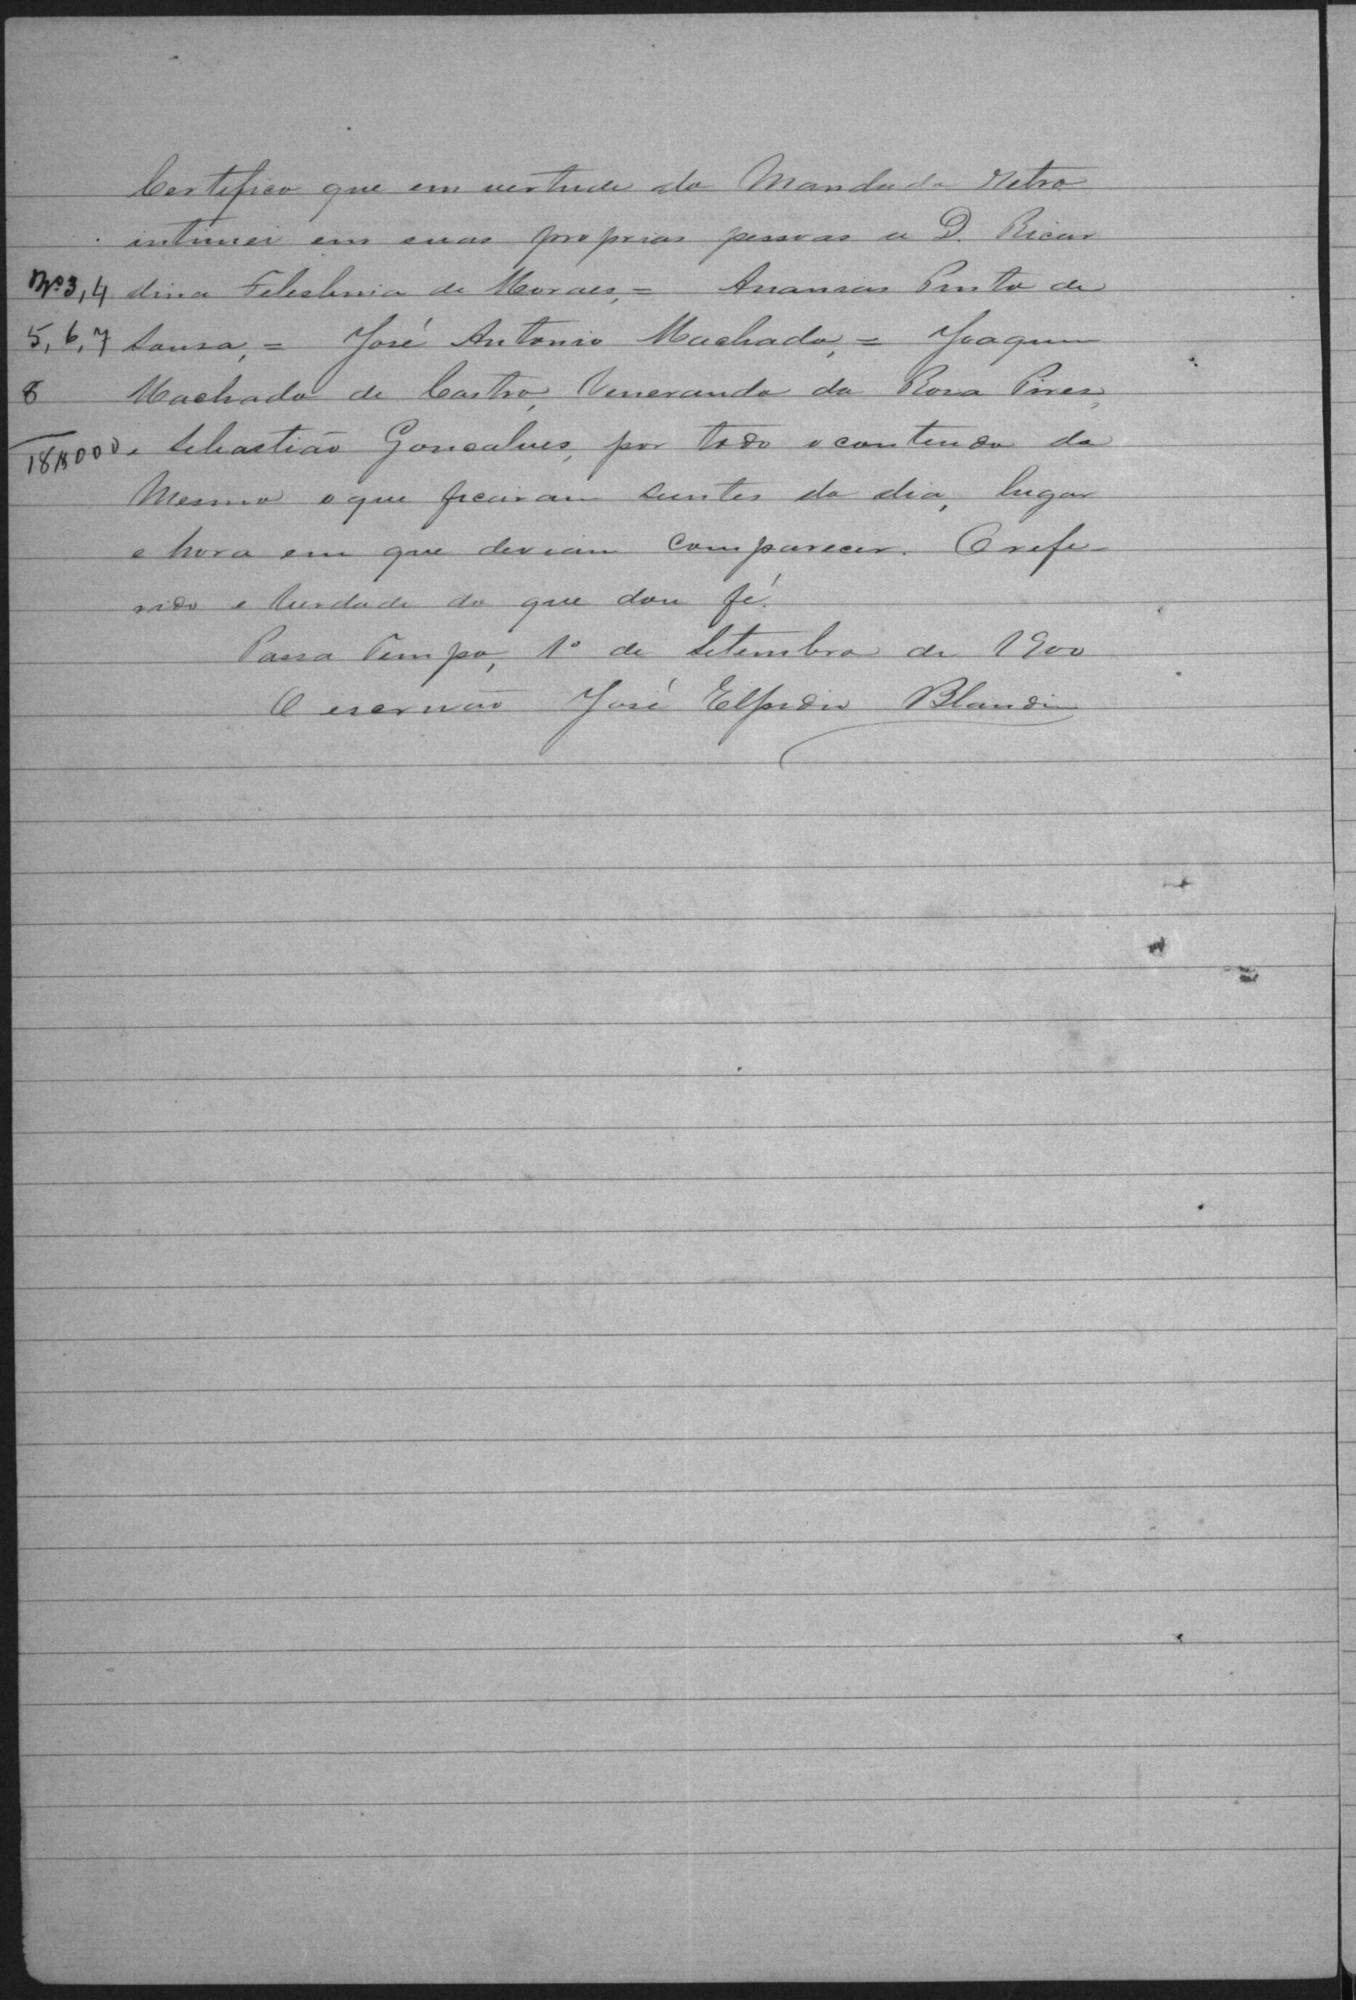 Certifico que em vertude do Mandado Retro
intimei em suas proprias pessoas a D. Ricar
Nº 3, 4 dina de Moraes, = Ananias Pinto de
5, 6, 7 Sousa, = José Antonio Machado, = Joaquim
8 Machado de Castro, Venerando da Rosa Pires,
18$000 e Sebastião Gonsalves, por todo o contendo do
Mesmo o que ficaram sientes do dia, lugar
e hora em que deviam comparecer. O refe-
rido e verdade do que dou fé.
Passa Tempo, 1º de Setembro de 1900
O escrivão José Elpidio Blandin